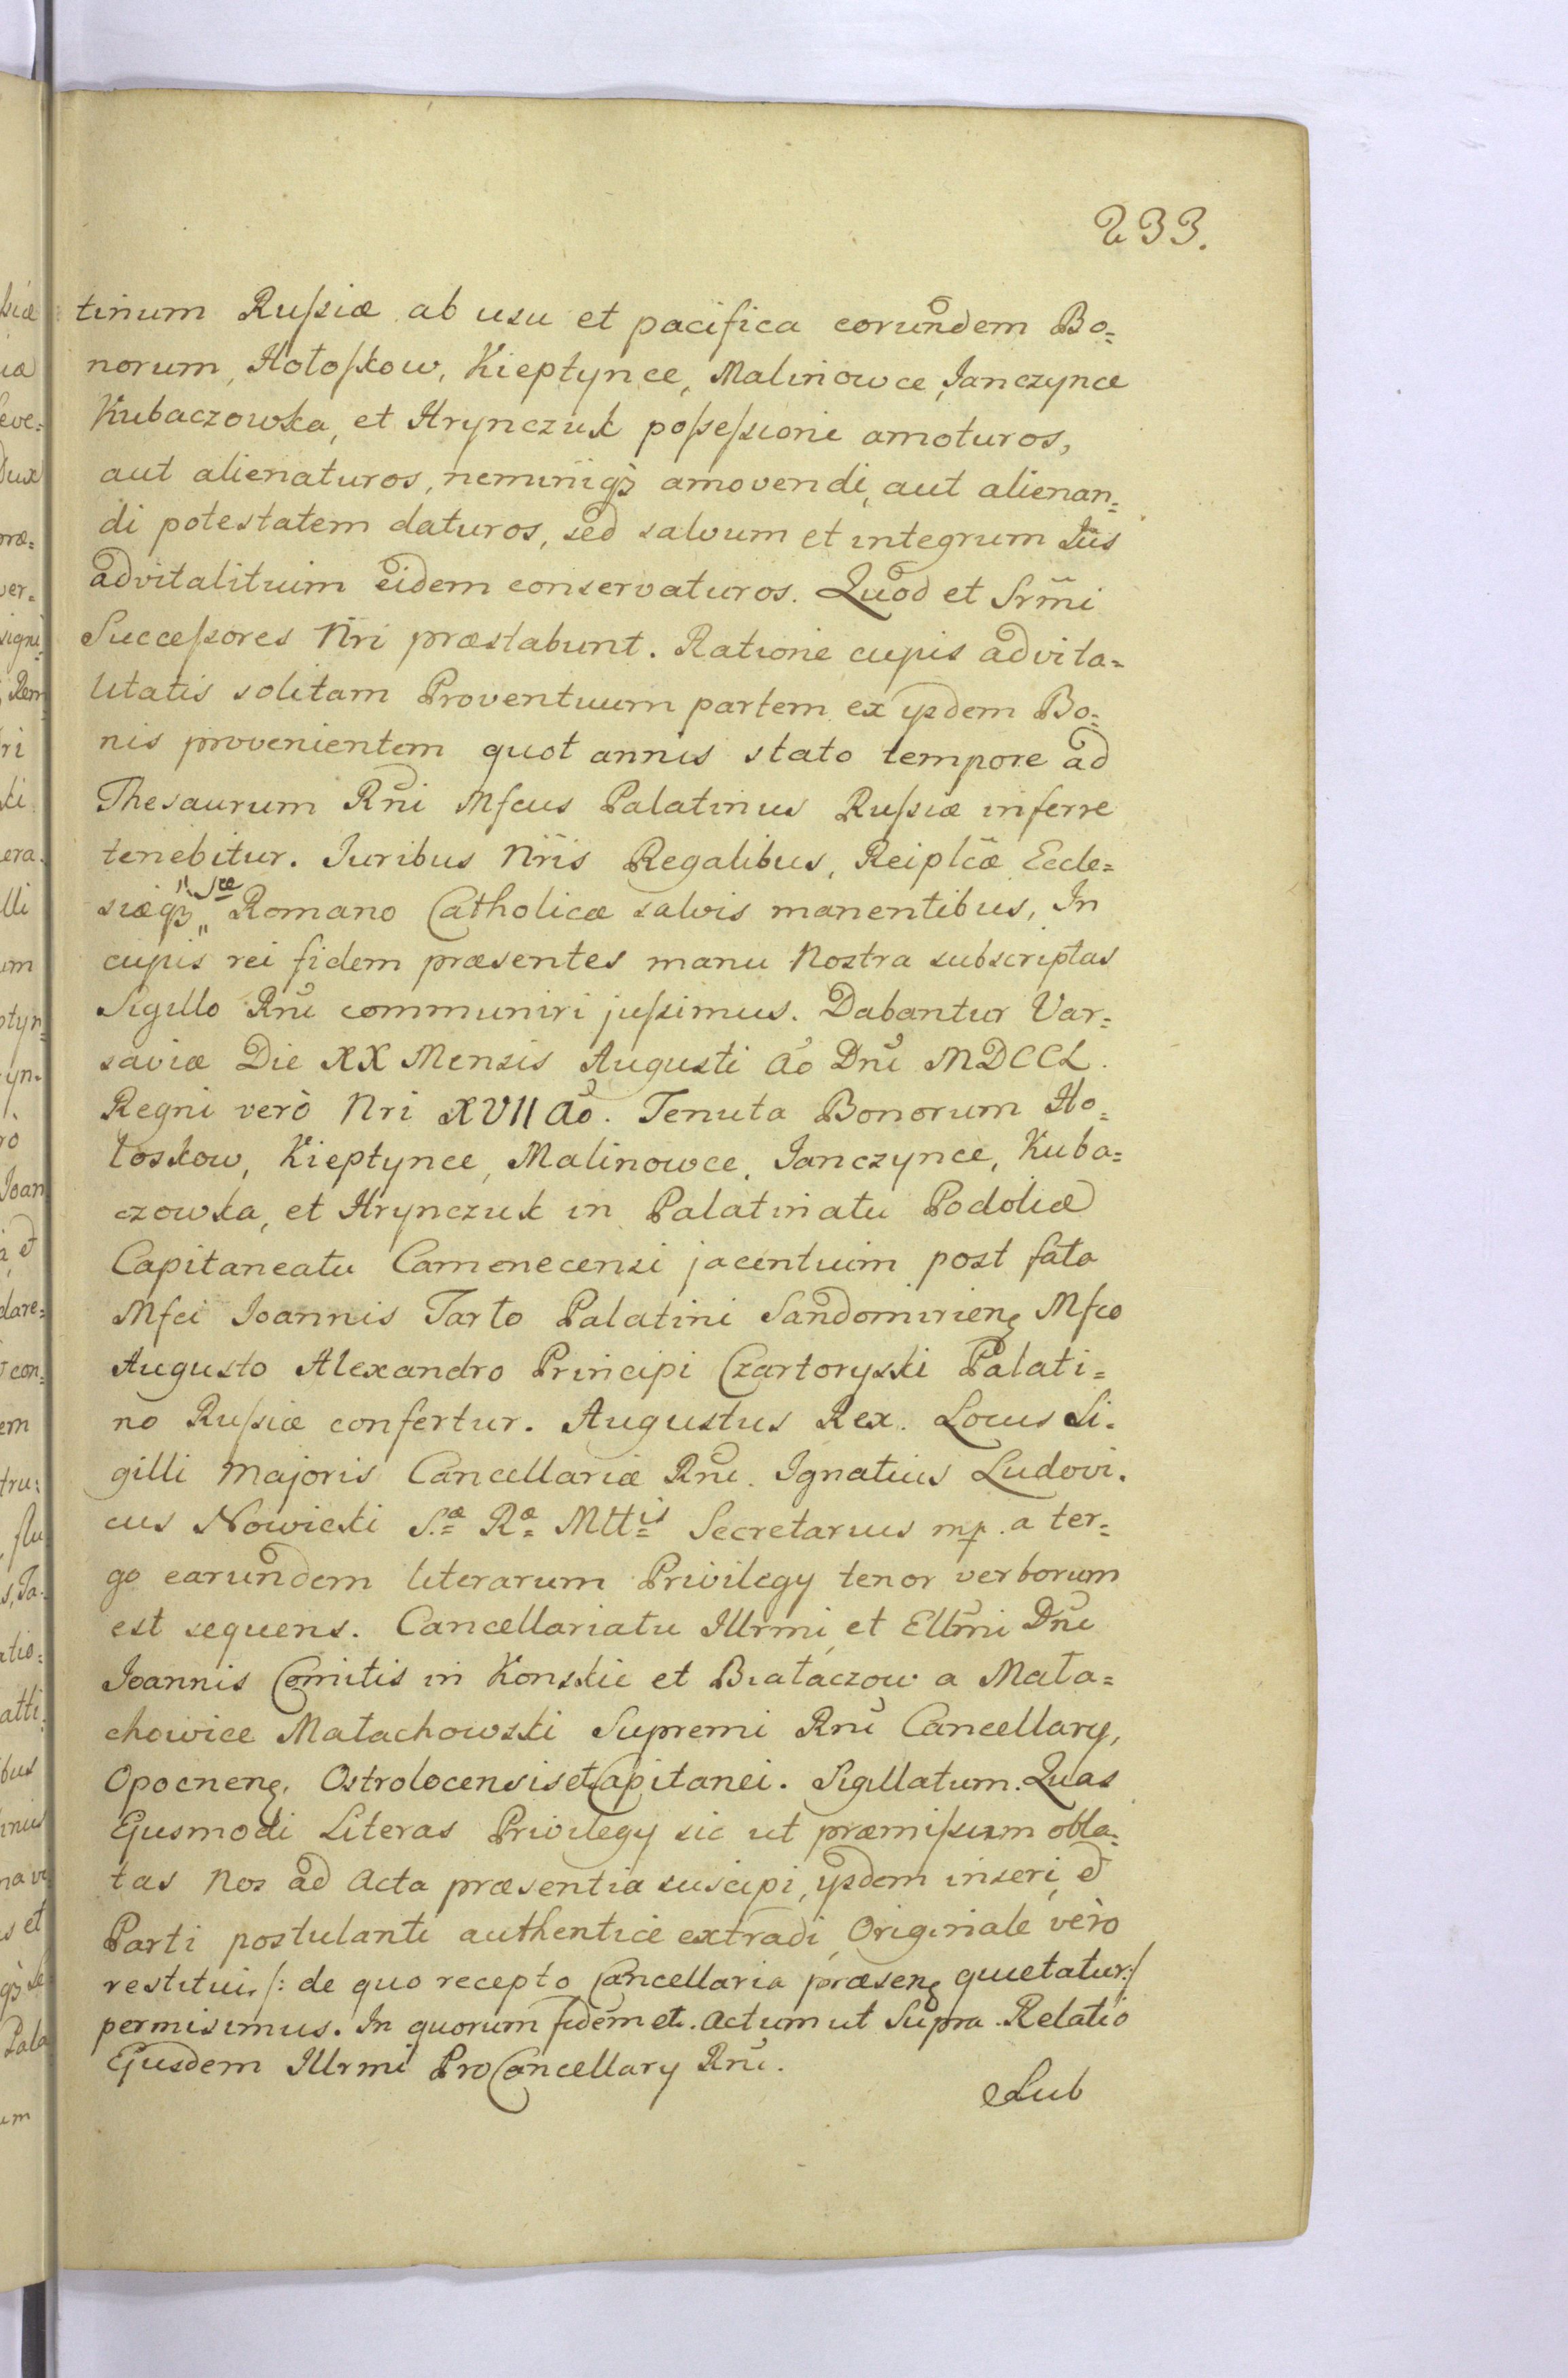 233.
tinum Rusſiæ ab usu et pacifica eorundem Bo=
norum, Hołoſkow, Kieptynce, Malinowce, Janczynce
Kubaczowka, et Hrynczuk poſseſsione amoturos,
aut alienaturos, neminiqꝫ amovendi, aut alienan=
di potestatem daturos, sed salvum et integrum Jus
advitalitium eidem conservaturos. Quod et Srm̃i
Succeſsores Nr̃i præstabunt. Ratione cujus advita=
litatis solitam Proventuum partem ex ysdem Bo=
nis provenientem quot annis stato tempore ad
Thesaurum Rñi Mfcus Palatinus Ruſsiæ inferre
tenebitur. Juribus Nr̃is Regalibus, Reiplcæ Eccle=
siæqꝫ Sᵃᵉ Romano Catholicæ salvis manentibus, In
cujus rei fidem præsentes manu Nostra subscriptas
Sigillo Rñi communiri juſsimus. Dabantur Var=
saviæ Die XX Mensis Augusti Ao Dñi MDCCL.
Regni verò Nri XVII Ao. Tenuta Bonorum Ho=
łoskow, Kieptynce, Malinowce, Janczynce, Kuba=
czowka, et Hrynczuk in Palatinatu Podoliæ
Capitaneatu Camenecensi jacentium post fata
Mfci Joannis Tarło Palatini Sandomirienꝫ Mfco
Augusto Alexandro Principi Czartoryski Palati=
no Ruſsiæ confertur. Augustus Rex. Locus Si=
gilli Majoris Cancellariæ Rñi. Ignatius Ludovi=
cus Nowicki S.ᵃᵉ Rᵃᵉ Mttⁱˢ Secretarius mp. a ter=
go earundem literarum Privilegy tenor verborum
est sequens. Cancellariatu Illrmi et Ellm̃i Dñi
Joannis Comitis in Konskie et Białaczow a Mała=
chowice Małachowski Supremi Rñi Cancellary,
Opocnenꝫ, Ostrolocensis et Capitanei. Sigillatum. Quas
Ejusmodi Literas Privilegy sic ut præmiſsum obla=
tas Nos ad Acta præsentia suscipi, ysdem inseri, et
Parti postulanti authentice extradi, Originale verò
restitui, /: de quo recepto Cancellaria præsenꝫ quietatur :/
permisimus. In quorum fidem et. Actum ut Supra. Relatio
Ejusdem Illrmi ProCancellary Rñi.
Sub